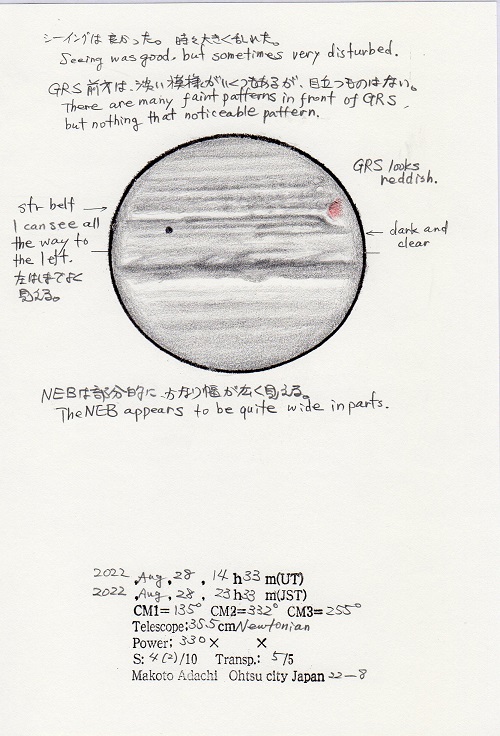 シーイングは良かった。時々大きく乱れた。
Seeing was good, but sometimes very disturbed.
GRS前方は、淡い模様がいくつもあるが、目立つものはない。
There are many faint patterns in front of GRS,
but nothing that noticeable pattern.
GRS looks
reddish.
str belt
I can see all
the way to
the left.
左はしまでよく
見える。
dark and
clear
NEBは部分的に かなり幅が広く見える。
The NEB appears to be quite wide in parts.
2022 ,Aug ,28 , 14 h33 m(UT)
2022 ,Aug ,28 , 23 h33 m(JST)
CM1=135° CM2=332° CM3=255°
Telescope;35.5cm/Newtonian
Power; 330× ×
S: 4(2)/10 Transp.: 5/5
Makoto Adachi Ohtsu city Japan 22-8